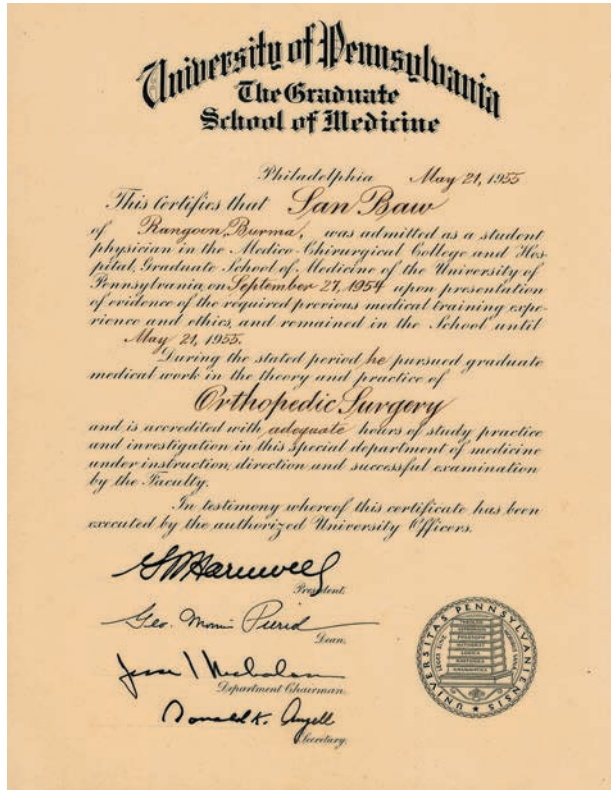 University of Pennsylvania
The Graduate
School of Medicine
Philadelphia May 21, 1955
This Certifies that San Baw
of Rangoon, Burma, was admitted as a student
physician in the Medico-Chirurgical College and Hos-
pital, Graduate School of Medicine of the University of
Pennsylvania, on September 27, 1954 upon presentation
of evidence of the required previous medical training expe-
rience and ethics, and remained in the School until
May 21, 1955.
During the stated period he pursued graduate
medical work in the theory and practice of
Orthopedic Surgery
and is accredited with adequate hours of study practice
and investigation in this special department of medicine
under instruction, direction and successful examination
by the Faculty.
In testimony whereof this certificate has been
executed by the authorized University Officers.
President.
Geo. Morris Piersol
Dean.
Department Chairman.
Donald K. Angell
Secretary.
UNIVERSITAS PENNSYLVANIENSIS